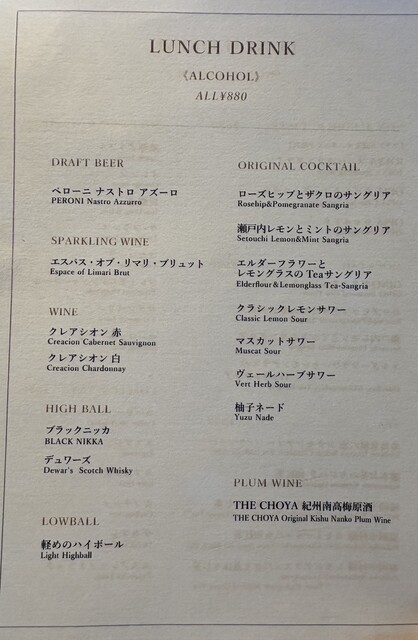 LUNCH DRINK
《ALCOHOL》
ALL¥880
DRAFT BEER
ペローニ ナストロ アズーロ
PERONI Nastro Azzurro
SPARKLING WINE
エスパス・オブ・リマリ・ブリュット
Espace of Limari Brut
WINE
クレアシオン 赤
Creacion Cabernet Sauvignon
クレアシオン 白
Creacion Chardonnay
HIGH BALL
ブラックニッカ
BLACK NIKKA
デュワーズ
Dewar's Scotch Whisky
LOWBALL
軽めのハイボール
Light Highball
ORIGINAL COCKTAIL
ローズヒップとザクロのサングリア
Rosehip&Pomegranate Sangria
瀬戸内レモンとミントのサングリア
Setouchi Lemon&Mint Sangria
エルダーフラワーと
レモングラスの Teaサングリア
Elderflour&Lemonglass Tea-Sangria
クラシックレモンサワー
Classic Lemon Sour
マスカットサワー
Muscat Sour
ヴェールハーブサワー
Vert Herb Sour
柚子ネード
Yuzu Nade
PLUM WINE
THE CHOYA 紀州南高梅原酒
THE CHOYA Original Kishu Nanko Plum Wine